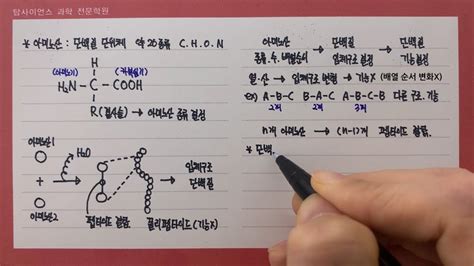 탐사이언스 과학 전문학원
* 아미노산 : 단백질 단위체 약 20종류 C.H.O.N
(아미노기) H (카복실기)
H₂N - C - COOH
R(곁사슬) → 아미노산 종류 결정
아미노산1
H₂O
+
아미노산2
펩타이드 결합
폴리펩타이드(기능X)
입체구조
단백질
아미노산 → 단백질 → 단백질
종류.수.배열순서 입체구조 결정 기능결정
열.산 → 입체구조 변형 → 기능X (배열 순서 변화X)
ex) A-B-C B-A-C A-B-C-B 다른 구조.기능
2개 2개 3개
n개 아미노산 → (n-1)개 펩타이드 결합.
* 단백.